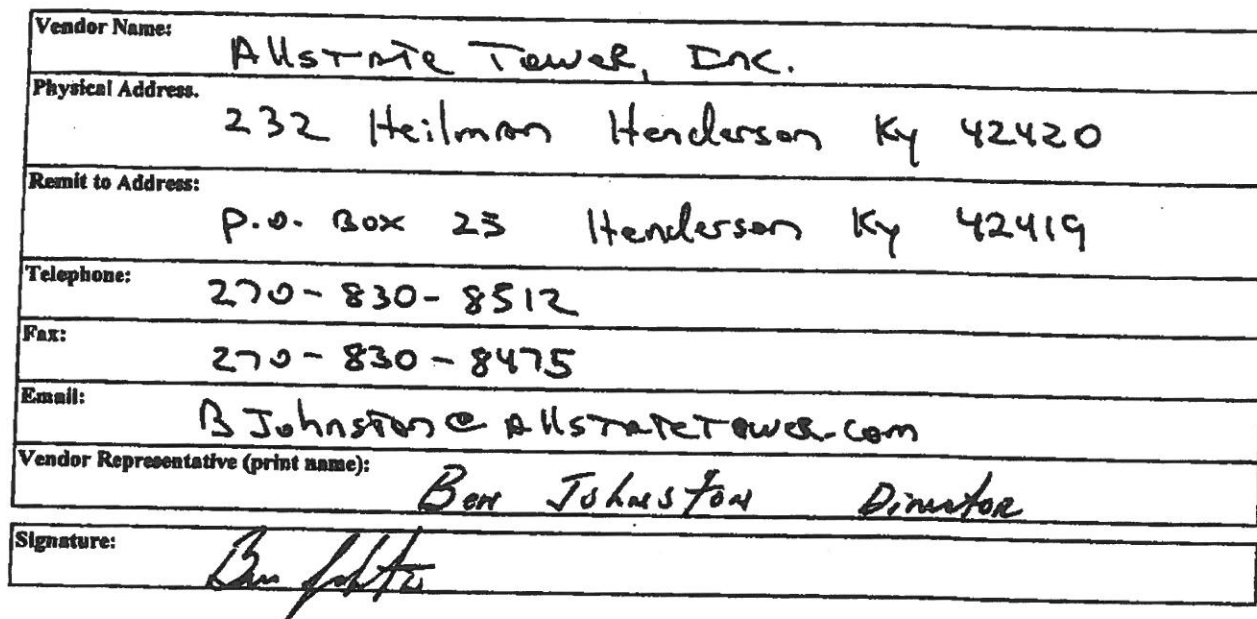 Vendor Name:
Allstate Tower, Inc.
Physical Address.
232 Heilman Henderson Ky 42420
Remit to Address:
P.O. Box 25 Henderson Ky 42419
Telephone:
270-830-8512
Fax:
270-830-8475
Email:
BJohnston@AllstateTower.com
Vendor Representative (print name):
Ben Johnston Director
Signature:
Ben